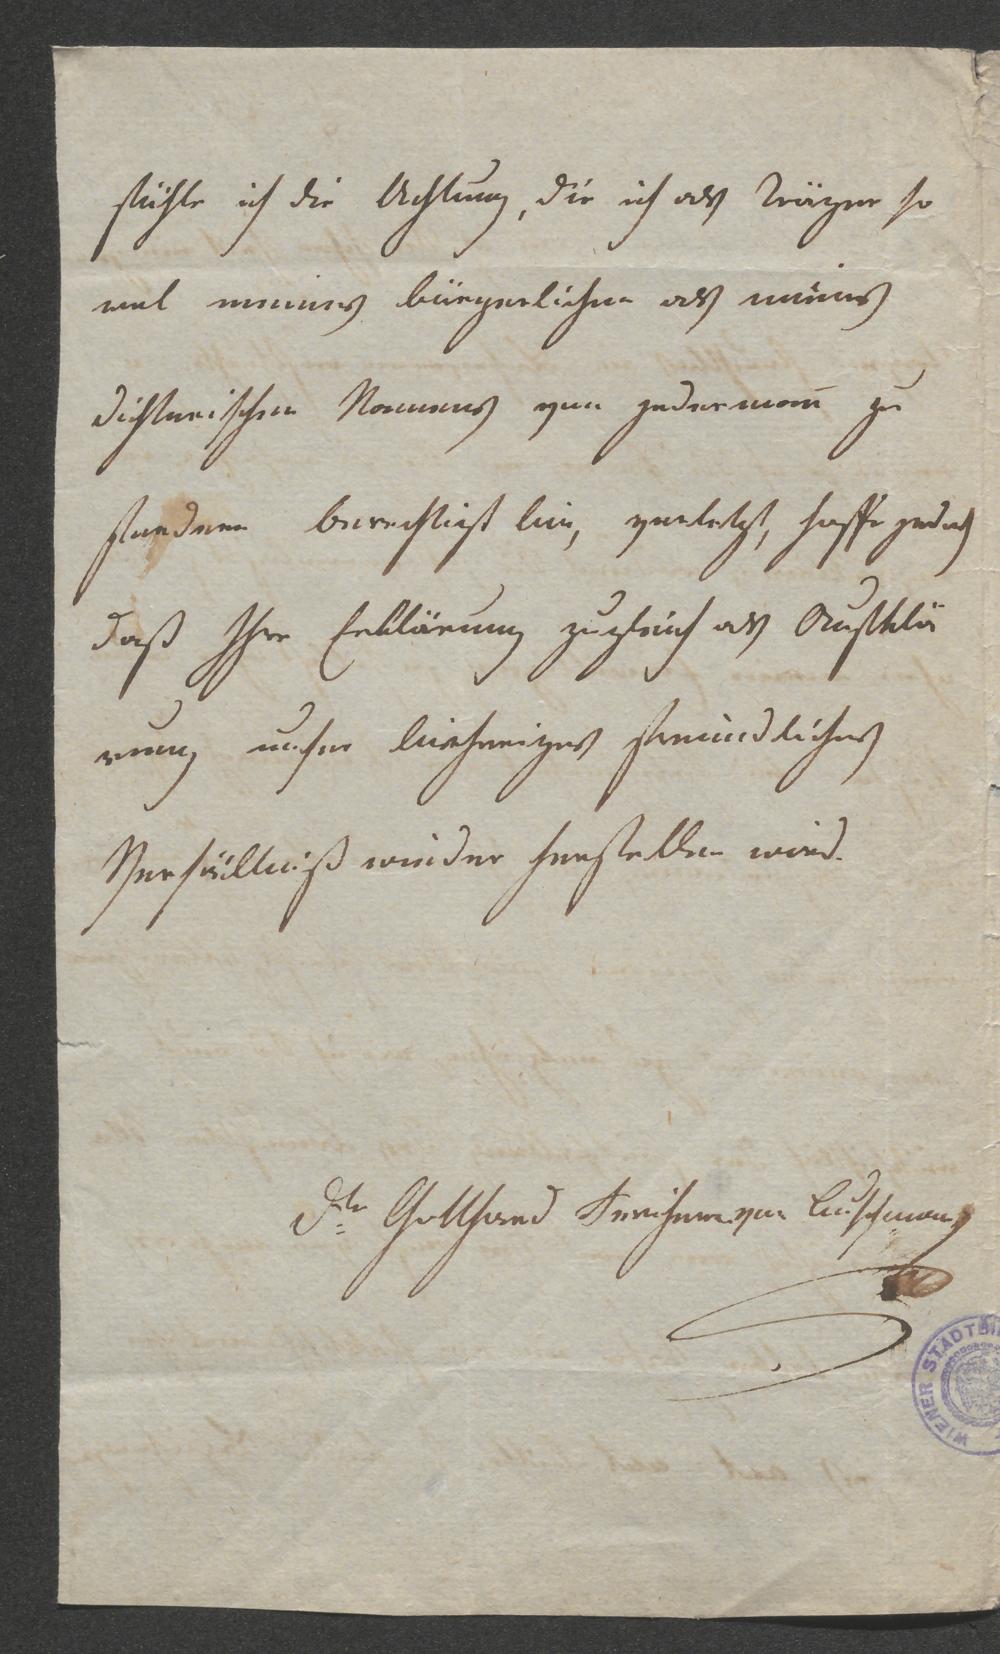 fühle ich die Achtung, die ich als Träger so
wol meines bürgerlichen als meines
dichterischen Namens von jedermañ zu
fordern berechtigt bin, verletzt, hoffe jedoch
daß Ihre Erklärung zugleich als Aufklä
rung unser bisheriges freundliches
Verhältniß wieder herstellen wird.
Dr Gotthard Freiherr von Buschman
WIENER STADTBI